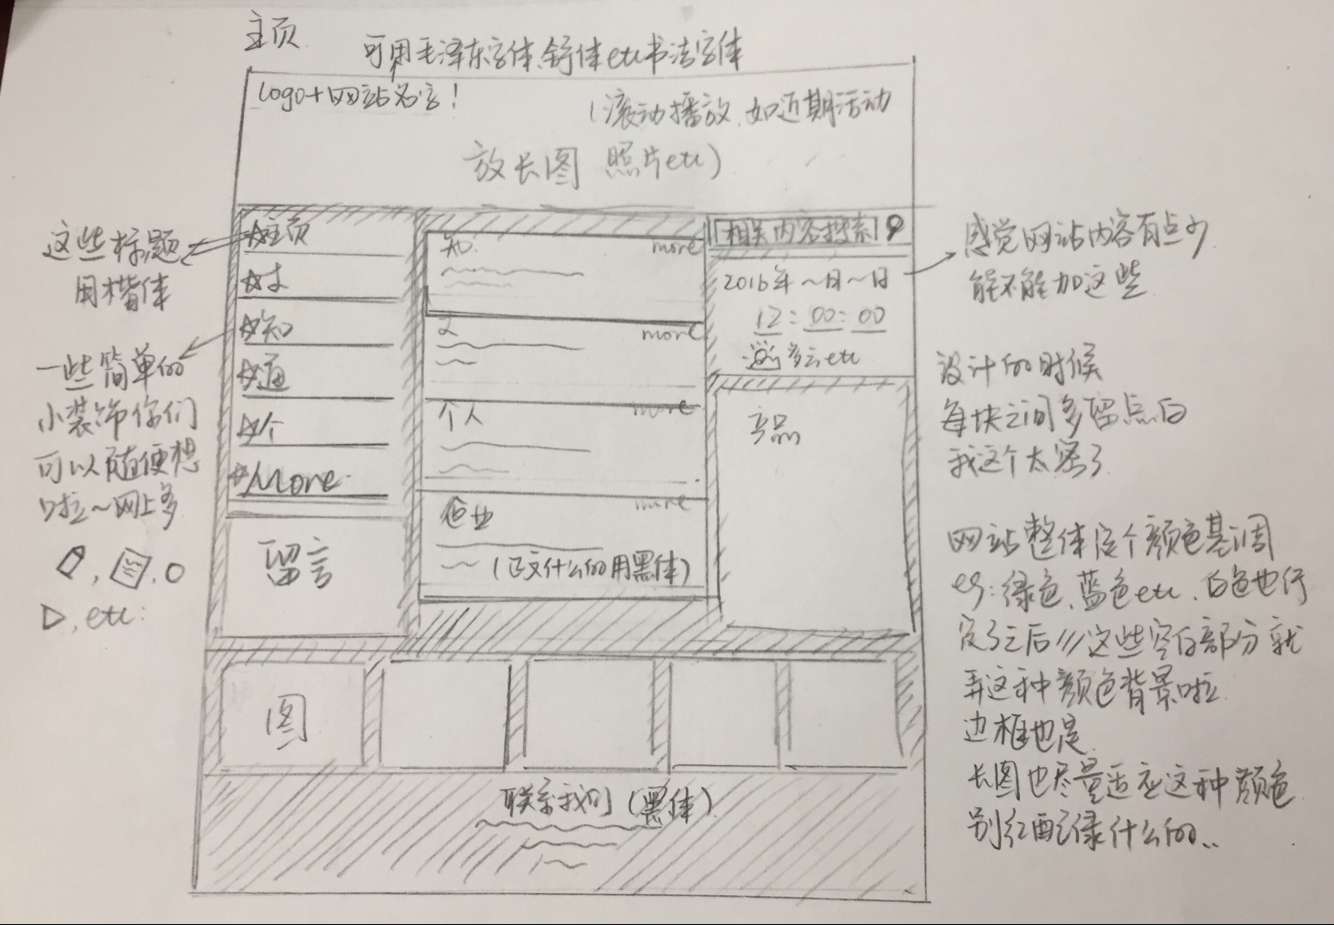 主页
可用毛泽东字体、舒体etc书法字体
logo+网站名字!
(滚动播放、如近期活动
放长图 照片etc)
这些标题
用楷体
一些简单的
小装饰你们
可以随便想
啦~网上多
, , ,
, etc.
☆主页
☆文
☆知
☆通
☆个
☆More
留言
知. more
文 more
个人 more
企业 more
(正文什么的用黑体)
相关内容搜索
2016年~月~日
12:00:00
多云etc
产品
图
联系我们(黑体)
感觉网站内容有点少
能不能加这些
设计的时候
每块之间多留点白
我这个太密了
网站整体定个颜色基调
eg:绿色、蓝色etc、白色也行
定了之后///这些空白部分就
弄这种颜色背景啦
边框也是
长图也尽量适应这种颜色
别红配绿什么的..